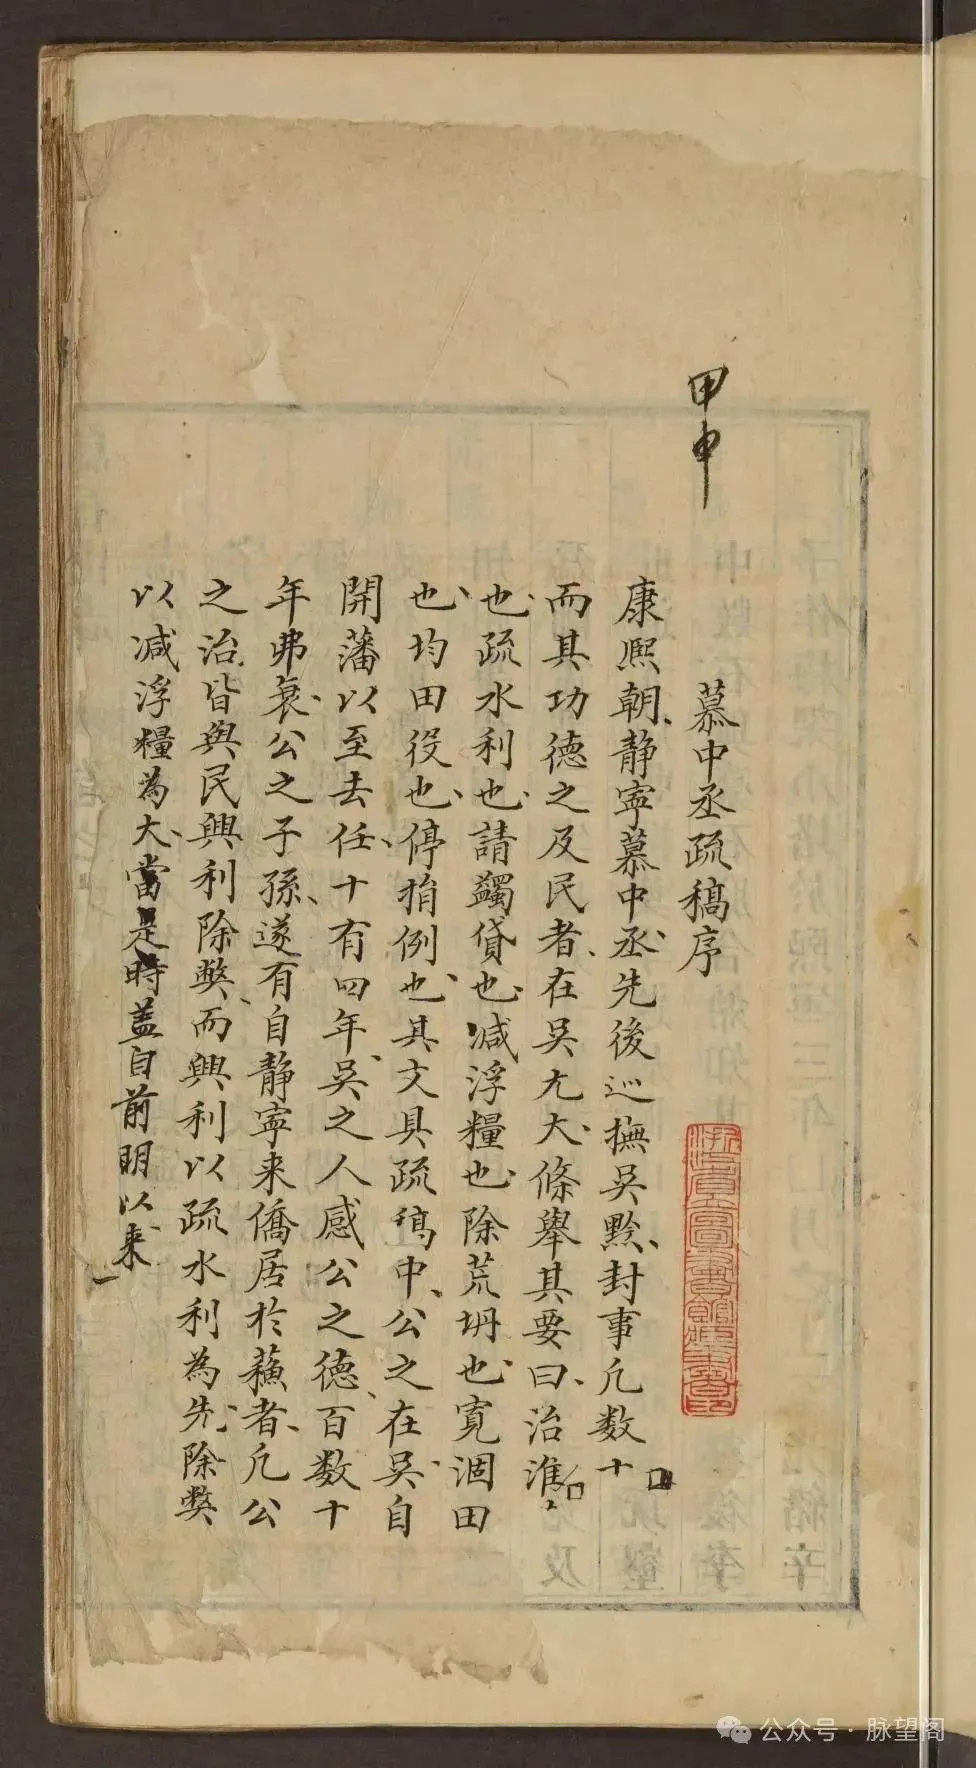 甲申
慕中丞疏稿序
康熙朝静寧慕中丞先後巡撫吳黔封事凡数十
而其功德之及民者在吳尤大條舉其要曰治淮
也疏水利也請蠲貸也减浮糧也除荒坍也寛涸田
也均田役也停捐例也具文具疏稿中公之在吳自
開藩以至去任十有四年吳之人感公之德百数十
年弗衰公之子孫遂有自静寧来僑居於蘓者凡公
之治皆與民興利除弊而興利以疏水利為先除弊
以减浮糧為大當是時盖自前明以来
浙江圖書館藏書印
公众号·脉望阁